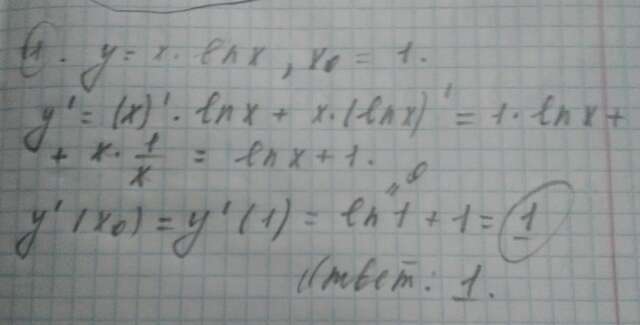 4. y = x · ln x, x₀ = 1.
y' = (x)' · ln x + x · (ln x)' = 1 · ln x +
+ x · 1/x = ln x + 1.
y'(x₀) = y'(1) = ln 1 + 1 = 1
" 0
Ответ: 1.